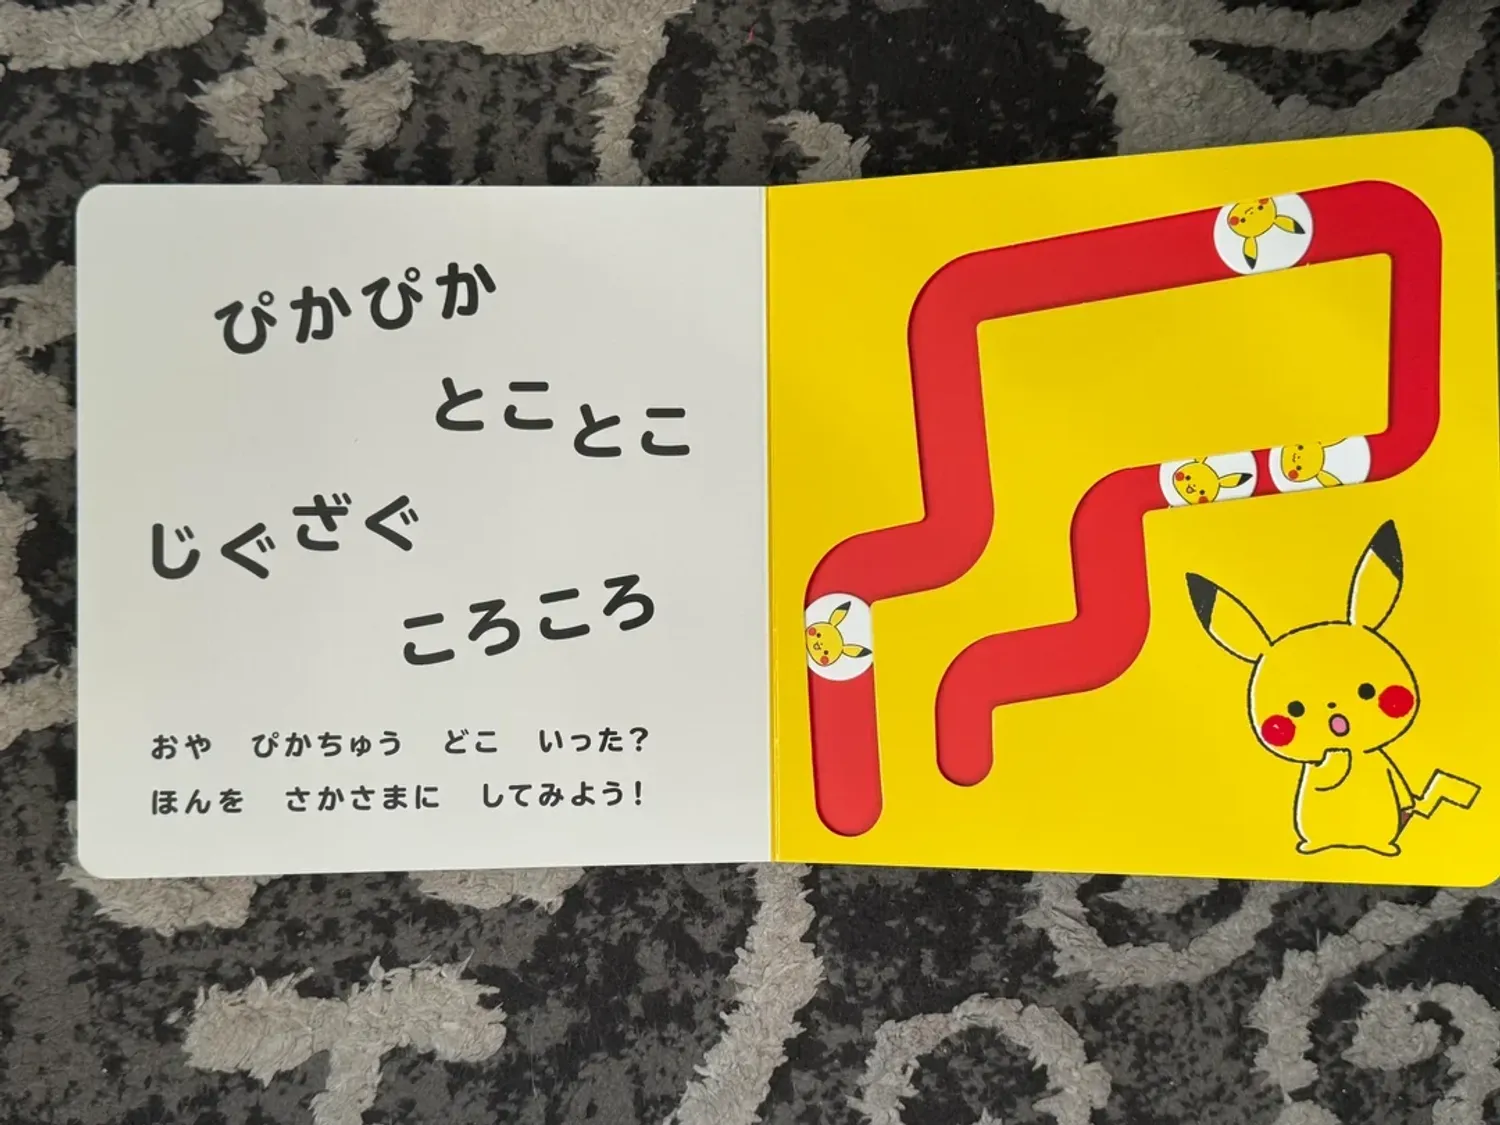 ぴかぴか
とことこ
じぐざぐ
ころころ
おや　ぴかちゅう　どこ　いった？
ほんを　さかさまに　してみよう！